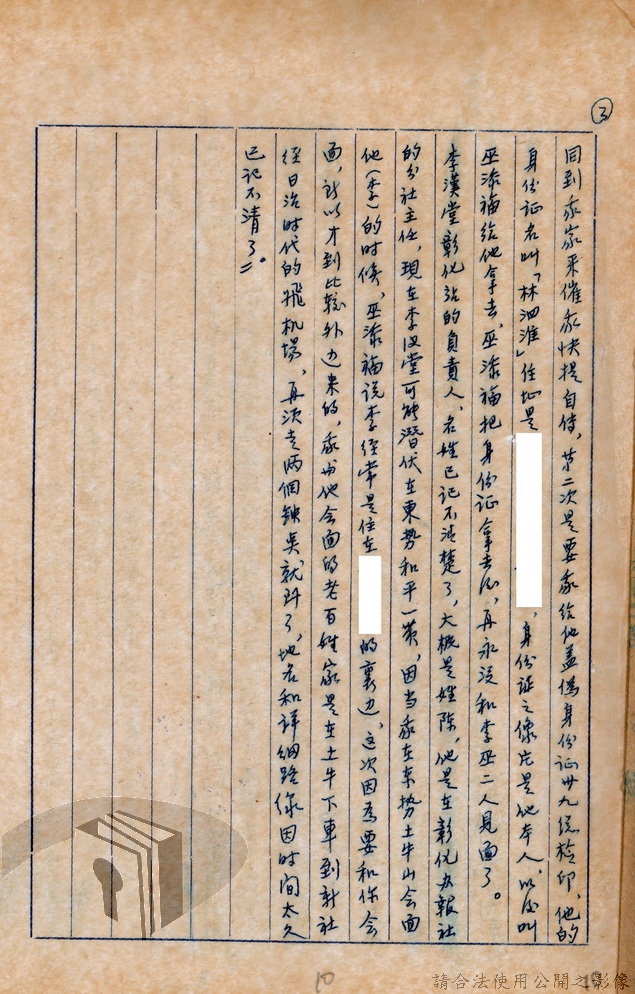 ③
回到我家来催我快提自传，第二次是要我给他盖偽身份証卅九総检印，他的
身份证名叫「林泗淮」住址是，身份証之像片是他本人，以后叫
巫添福给他拿去，巫添福把身份证拿去后，再永没和李巫二人見面了。
李漢堂彰化站的負責人，名姓已记不清楚了，大概是姓陈，他是在彰化办報社
的分社主任，現在李汉堂可能潛伏在東势和平一带，因当我在东势土牛山会面
他（李）的时候，巫添福说李经常是住在的裏边，这次因为要和你会
面，所以才到比較外边来的，我与他会面的老百姓家是在土牛下車到新社
经日治时代的飛机場，再次走两個钟头就到了，地名和詳細路線因时间太久
已记不清了。
10
請合法使用公開之影像